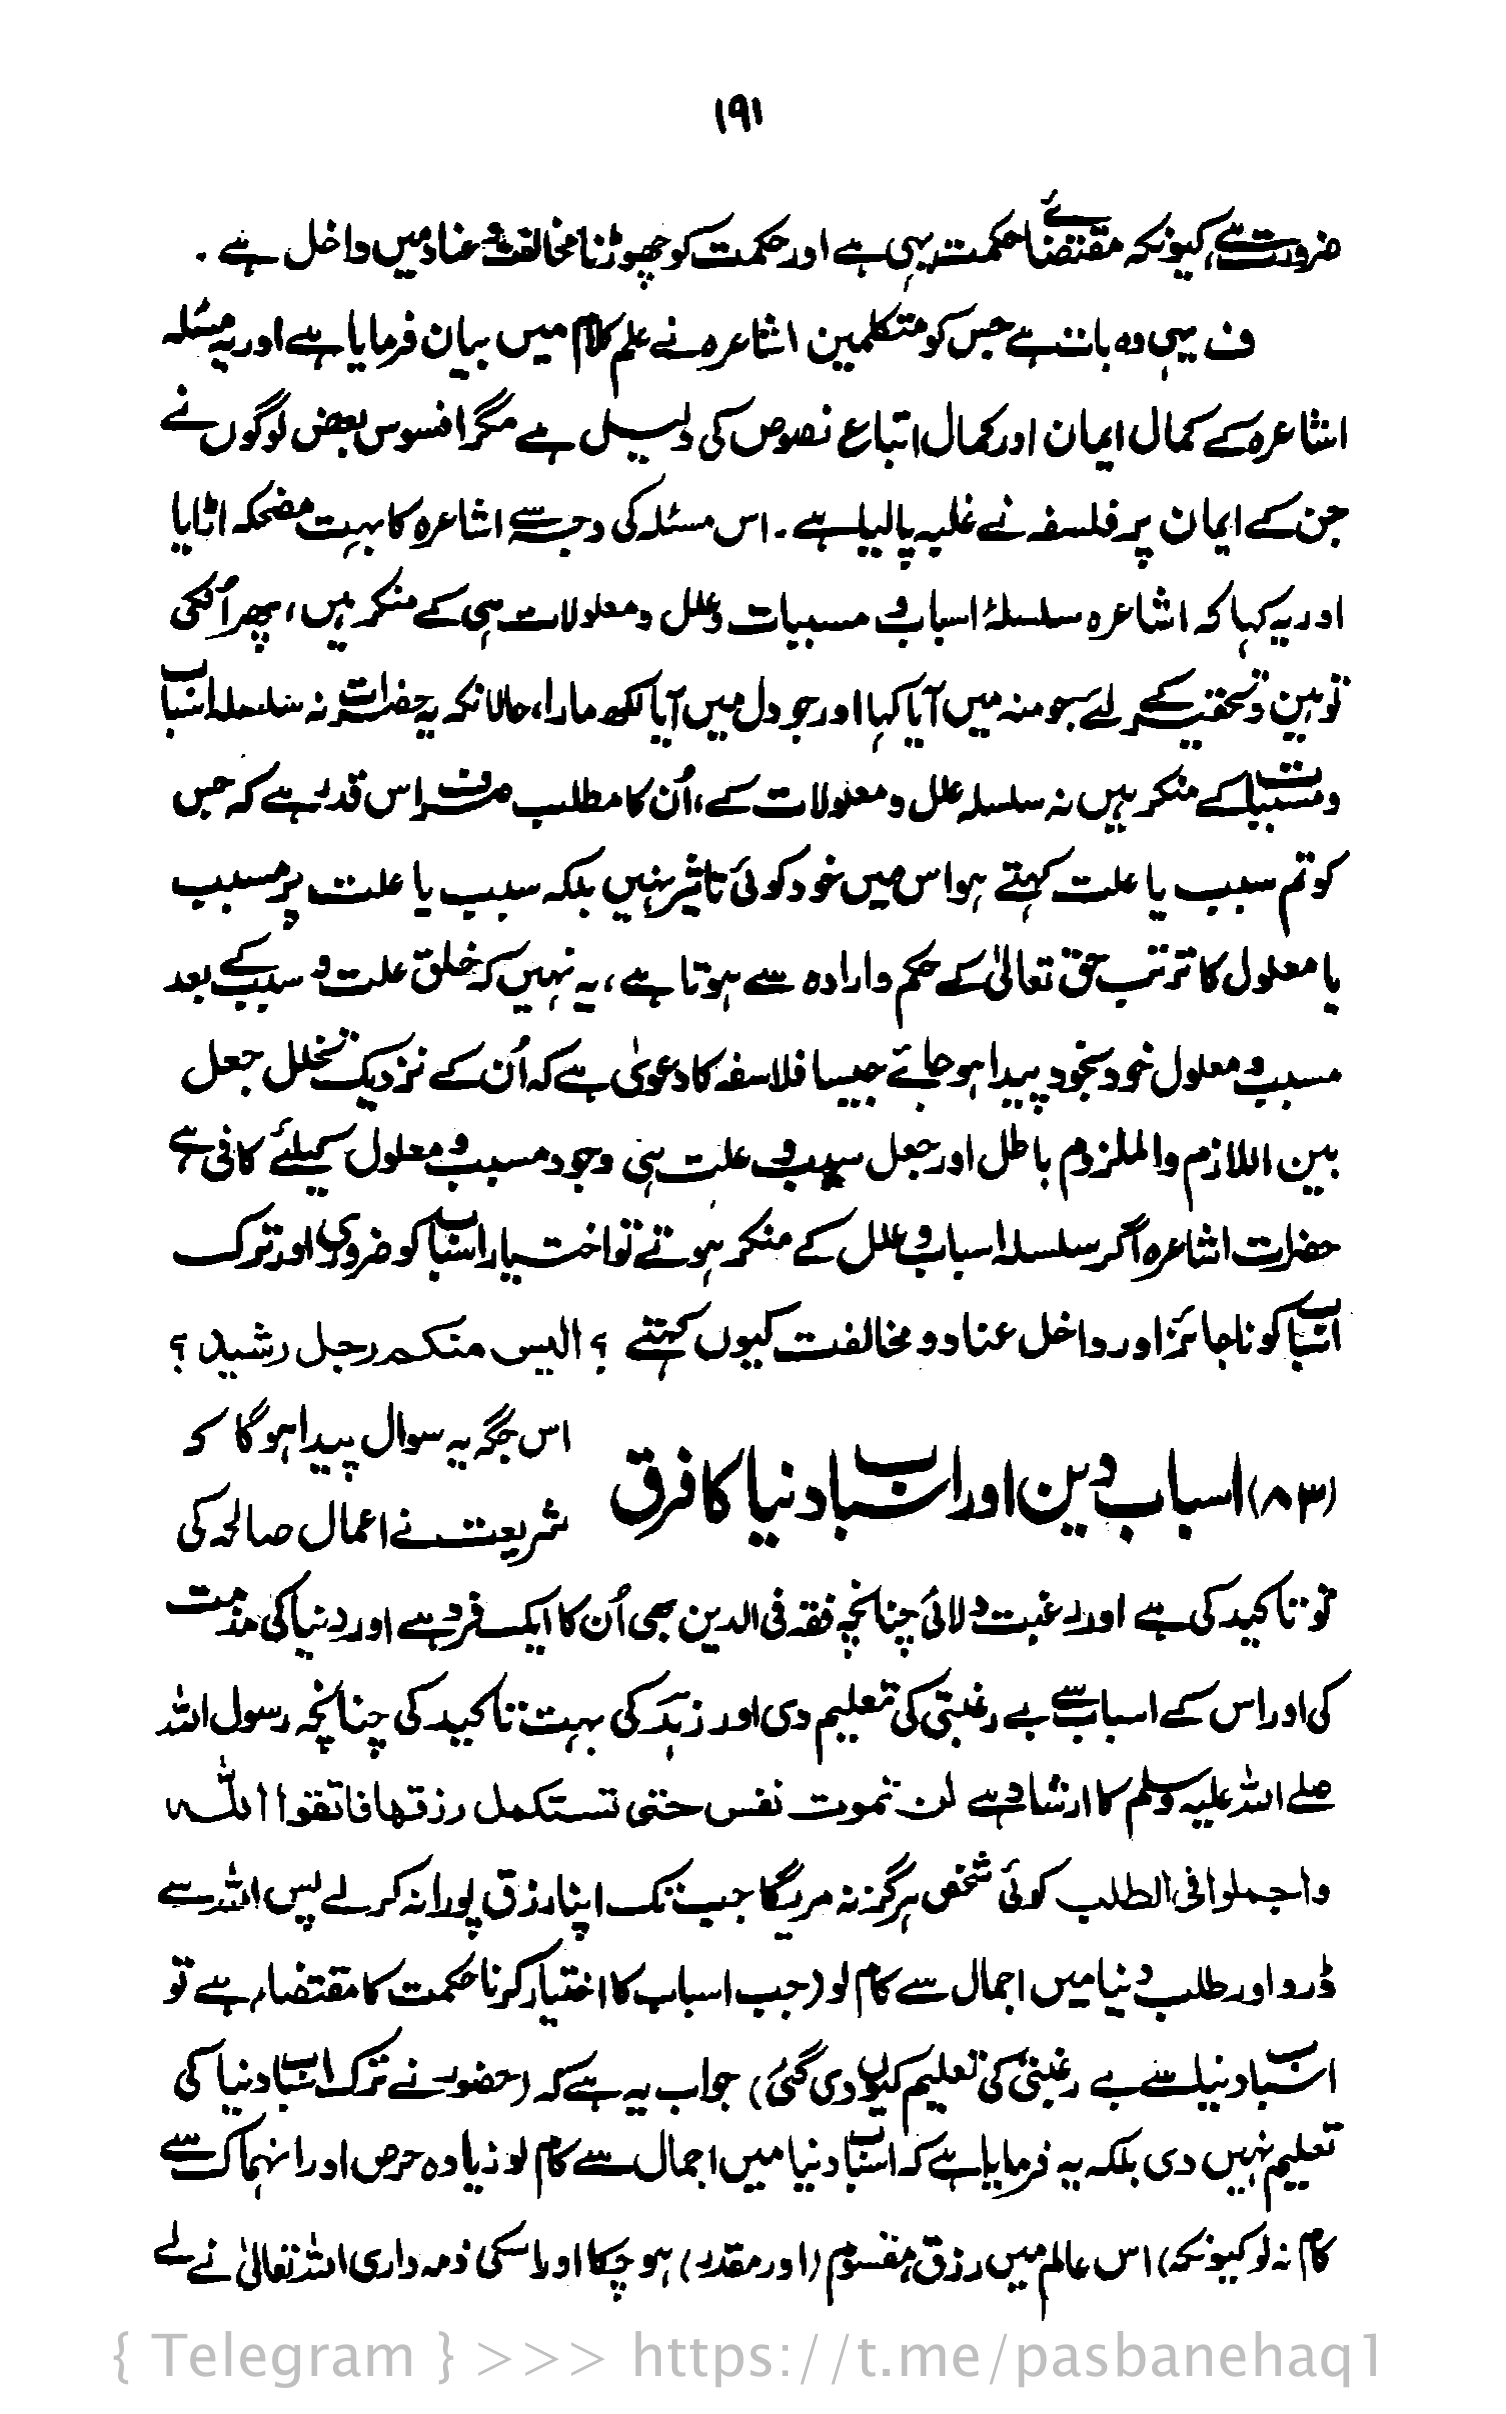 ۱۹۱
ضرورت ہے، کیونکہ مقتضائے حکمت یہی ہے اور حکمت کو چھوڑنا مخالفت و عناد میں داخل ہے ۔
ف یہی وہ بات ہے جس کو متکلمین اشاعرہ نے علم کلام میں بیان فرمایا ہے اور یہ مسئلہ
اشاعرہ کے کمال ایمان اور کمال اتباع نصوص کی دلیل ہے مگر افسوس بعض لوگوں نے
جن کے ایمان پر فلسفہ نے غلبہ پالیا ہے ۔ اس مسئلہ کی وجہ سے اشاعرہ کا بہت مضحکہ اڑایا
اور یہ کہا کہ اشاعرہ سلسلۂ اسباب و مسببات و علل و معلولات ہی کے منکر ہیں، پھر اُنکی
توہین و تحقیر کے لئے جو منہ میں آیا کہا اور جو دل میں آیا لکھ مارا، حالانکہ یہ حضرات نہ سلسلہ اسباب
و مسببات کے منکر ہیں نہ سلسلہ علل و معلولات کے، اُن کا مطلب صرف اس قدر ہے کہ جس
کو تم سبب یا علت کہتے ہو اس میں خود کوئی تاثیر نہیں بلکہ سبب یا علت پر مسبب
یا معلول کا ترتب حق تعالیٰ کے حکم و ارادہ سے ہوتا ہے، یہ نہیں کہ خلق علت و سبب کے بعد
مسبب و معلول خود بخود پیدا ہو جائے جیسا فلاسفہ کا دعویٰ ہے کہ اُن کے نزدیک تخلل جعل
بین اللازم والملزوم باطل اور جعل سبب و علت ہی وجود مسبب و معلول کیلئے کافی ہے
حضرات اشاعرہ اگر سلسلہ اسباب و علل کے منکر ہوتے تو اختیار اسباب کو ضروری اور ترک
اسباب کو ناجائز اور داخل عناد و مخالفت کیوں کہتے ؟ الیس منکم رجل رشید ؟
(۸۳) اسباب دین اور اسباب دنیا کا فرق
اس جگہ یہ سوال پیدا ہوگا کہ
شریعت نے اعمال صالحہ کی
تو تاکید کی ہے اور رغبت دلائی چنانچہ فقہ فی الدین بھی اُن کا ایک فرد ہے اور دنیا کی مذمت
کی اور اس کے اسباب سے بے رغبتی کی تعلیم دی اور زہد کی بہت تاکید کی چنانچہ رسول اللہ
صلے اللہ علیہ وسلم کا ارشاد ہے لن تموت نفس حتی تستکمل رزقھا فاتقوا اللہ
واجملوا فی الطلب کوئی شخص ہرگز نہ مریگا جب تک اپنا رزق پورا نہ کر لے پس اللہ سے
ڈرو اور طلب دنیا میں اجمال سے کام لو (جب اسباب کا اختیار کرنا حکمت کا مقتضاء ہے تو
اسباب دنیا سے بے رغبتی کی تعلیم کیوں دی گئی) جواب یہ ہے کہ (حضورؐ نے ترک اسباب دنیا کی
تعلیم نہیں دی بلکہ یہ فرمایا ہے کہ اسباب دنیا میں اجمال سے کام لو زیادہ حرص اور انہماک سے
کام نہ لو کیونکہ) اس عالم میں رزق مقسوم (اور مقدر) ہو چکا اور اسکی ذمہ داری اللہ تعالیٰ نے لے
{ Telegram } >>> https://t.me/pasbanehaq1